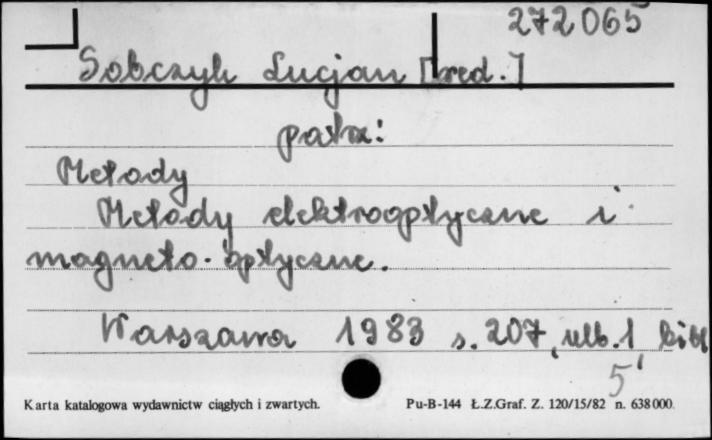 272065
Sobczyk Lucjan [red.]
patrz:
Metody
Metody elektrooptyczne i
magneto-optyczne.
Warszawa 1983 s. 207, nlb. 1 bibl
5
Karta katalogowa wydawnictw ciągłych i zwartych. Pu-B-144 Ł.Z.Graf. Z. 120/15/82 n. 638000.